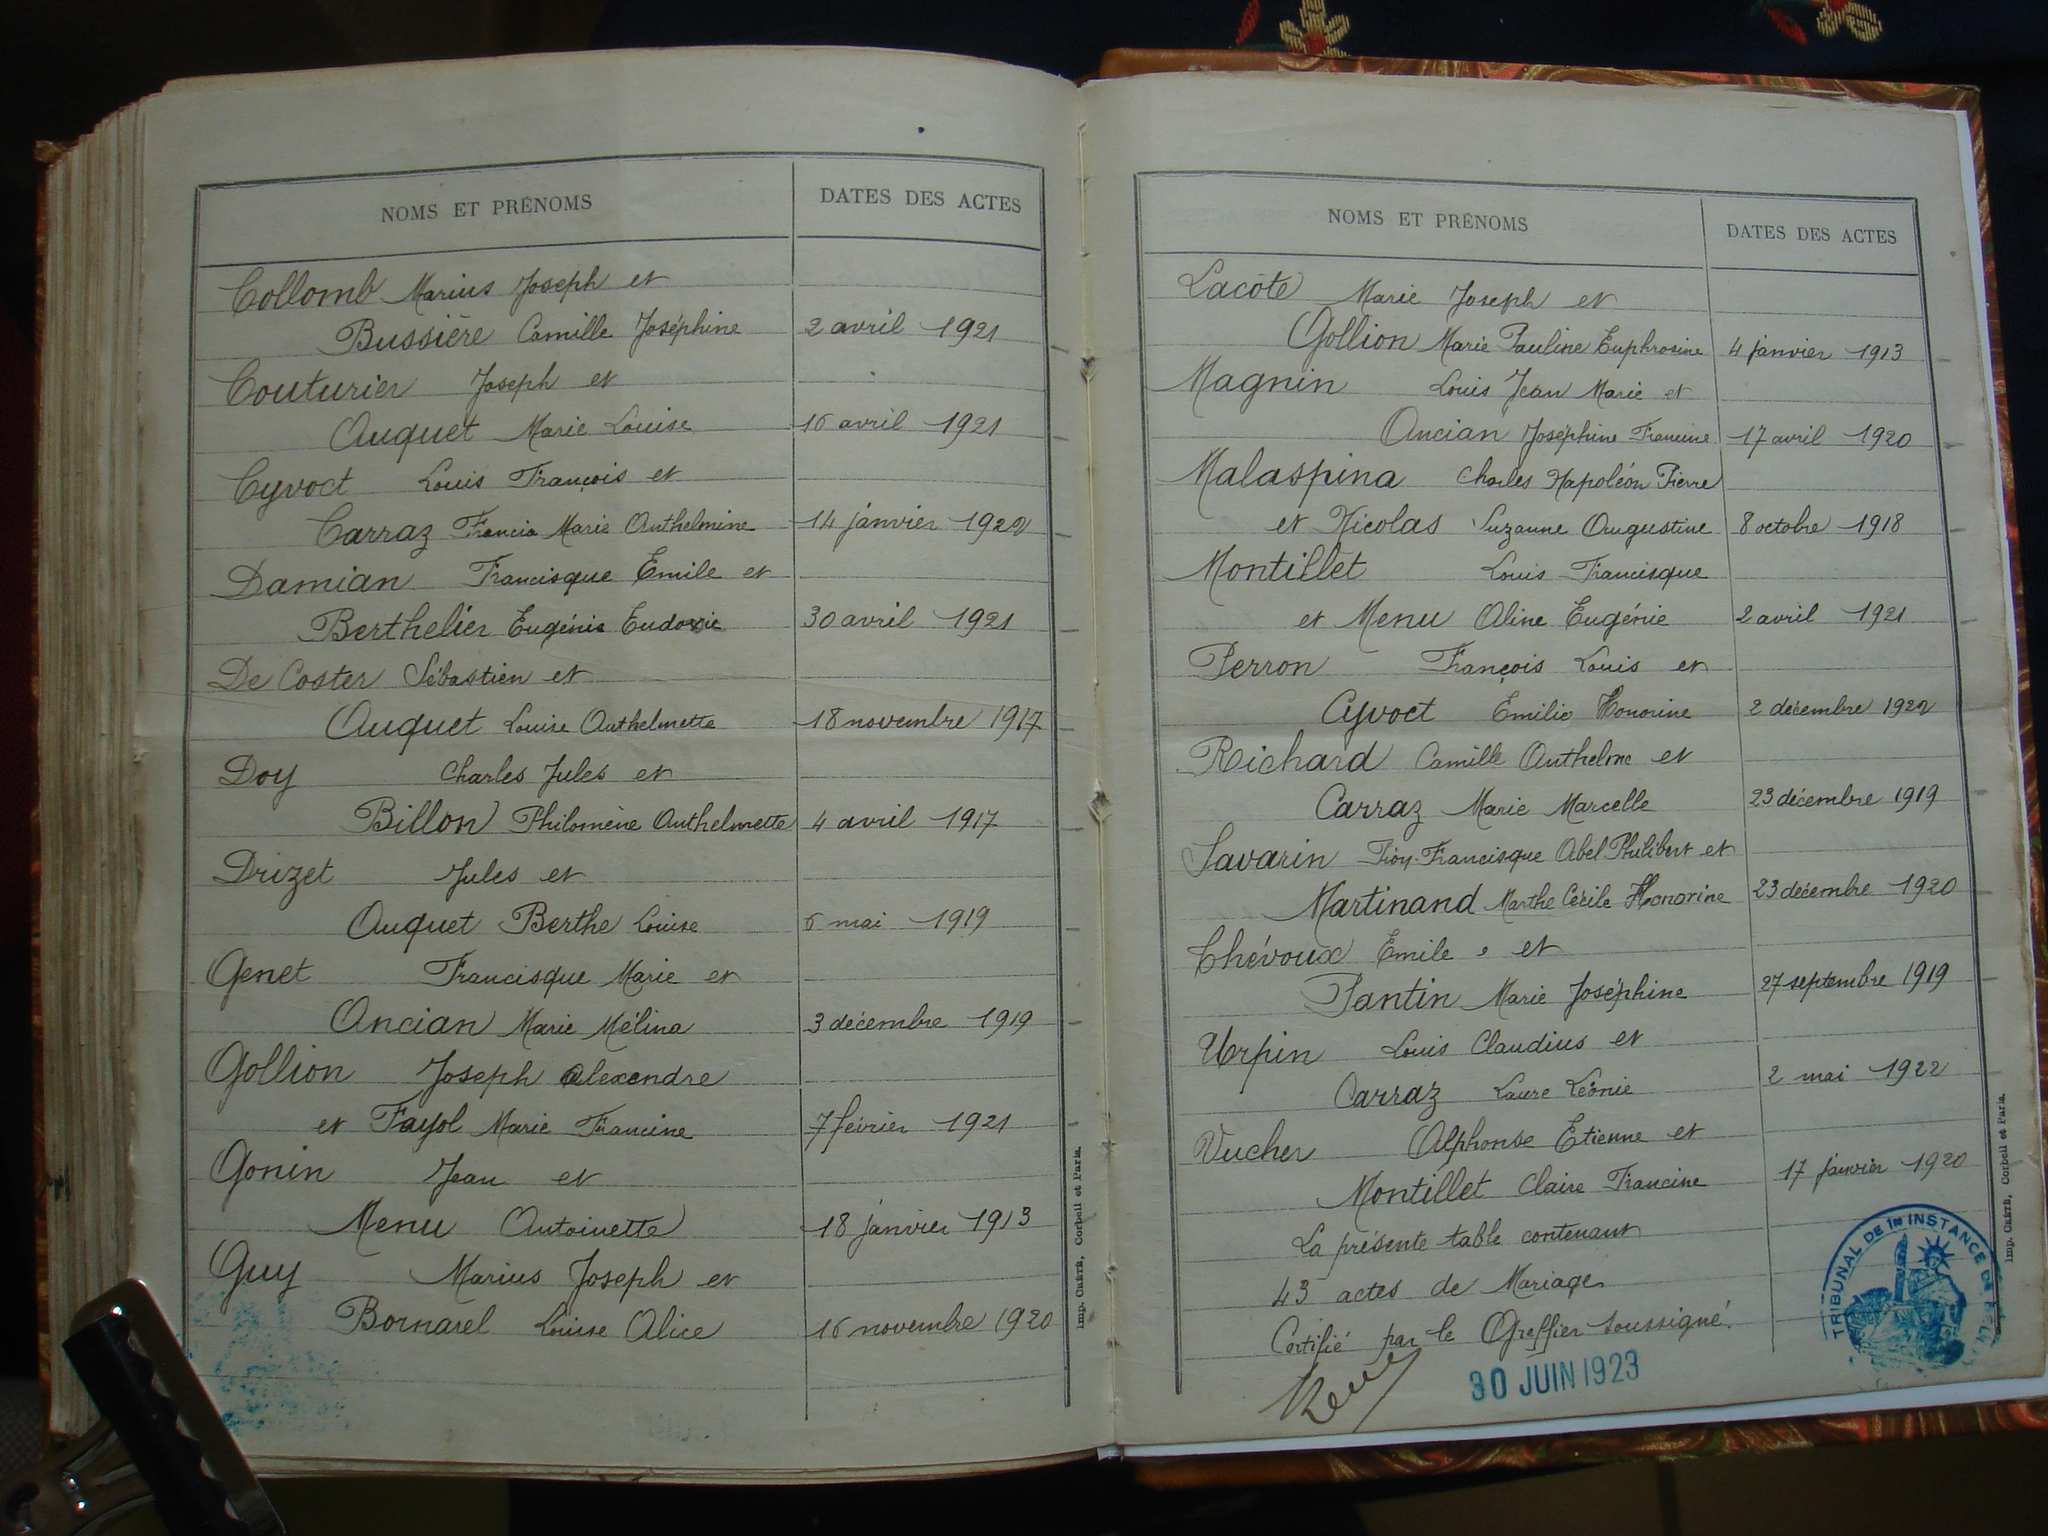 NOMS ET PRÉNOMS DATES DES ACTES
Collomb Marius Joseph et
Bussière Camille Joséphine 2 avril 1921
Couturier Joseph et
Auquet Marie Louise 16 avril 1921
Cyvoct Louis François et
Carraz Francia Marie Anthelmine 14 janvier 1922
Damian Francisque Emile et
Berthelier Eugénie Eudoxie 30 avril 1921
De Coster Sébastien et
Auquet Louise Anthelmette 18 novembre 1917
Doy Charles Jules et
Billon Philomène Anthelmette 4 avril 1917
Drizet Jules et
Auquet Berthe Louise 6 mai 1919
Genet Francisque Marie et
Ancian Marie Mélina 3 décembre 1919
Gollion Joseph Alexandre
et Fayol Marie Francine 7 février 1921
Gonin Jean et
Menu Antoinette 18 janvier 1913
Guy Marius Joseph et
Bornarel Louise Alice 16 novembre 1920
Imp. CRÉTÉ, Corbeil et Paris.
NOMS ET PRÉNOMS DATES DES ACTES
Lacôte Marie Joseph et
Gollion Marie Pauline Euphrosine 4 janvier 1913
Magnin Louis Jean Marie et
Ancian Joséphine Francine 17 avril 1920
Malaspina Charles Napoléon Pierre
et Nicolas Suzanne Augustine 8 octobre 1918
Montillet Louis Francisque
et Menu Aline Eugénie 2 avril 1921
Perron François Louis et
Cyvoct Emilie Honorine 2 décembre 1922
Richard Camille Anthelme et
Carraz Marie Marcelle 23 décembre 1919
Savarin Francisque Abel Philibert et
Martinand Marthe Cécile Honorine 23 décembre 1920
Thévoux Emile et
Pantin Marie Joséphine 27 septembre 1919
Urpin Louis Claudius et
Carraz Laure Léonie 2 mai 1922
Vucher Alphonse Etienne et
Montillet Claire Francine 17 janvier 1920
La présente table contenant
43 actes de Mariage
Certifié par le Greffier soussigné.
30 JUIN 1923
TRIBUNAL DE 1re INSTANCE DE
Imp. CRÉTÉ, Corbeil et Paris.